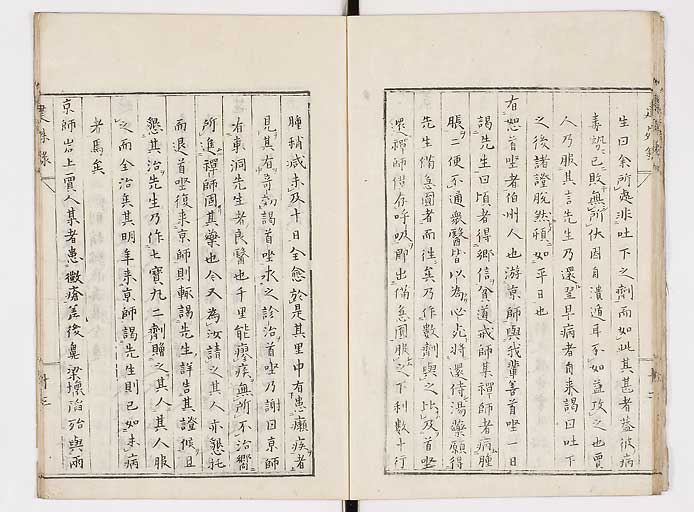 生曰余所處非吐下之劑而如此其甚者蓋彼病
毒勢已敗無所伏因自潰遁耳不如益攻之也賈
人乃服其言先生乃還翌早病者自来謁曰吐下
之後諸證脫然頓如平日也
有恕首座者伯州人也游京師與我輩善首座一日
謁先生曰頃者得鄉信貧道戒師某禪師者病腫
脹二便不通衆醫皆以為必死將還侍湯藥願得
先生備急圓者而往矣乃作數劑與之比及首座
還禪師僅存呼吸即出備急圓服之下利數十行
腫稍減未及十日全愈於是其里中有患癩疾者
見其有奇効謁首座求之診治首座乃謝曰京師
有東洞先生者良醫也千里能療疾無所不治嚮
所進禪師圓其藥也今又為汝請之其人亦懇託
而退首座復来京師則輙謁先生詳告其證候且
懇其治先生乃作七寶丸二劑贈之其人其人服
之而全治矣其明年来京師謁先生則已如未病
者焉矣
京師岩上賈人某者患黴瘡差後鼻梁壞陷殆與兩